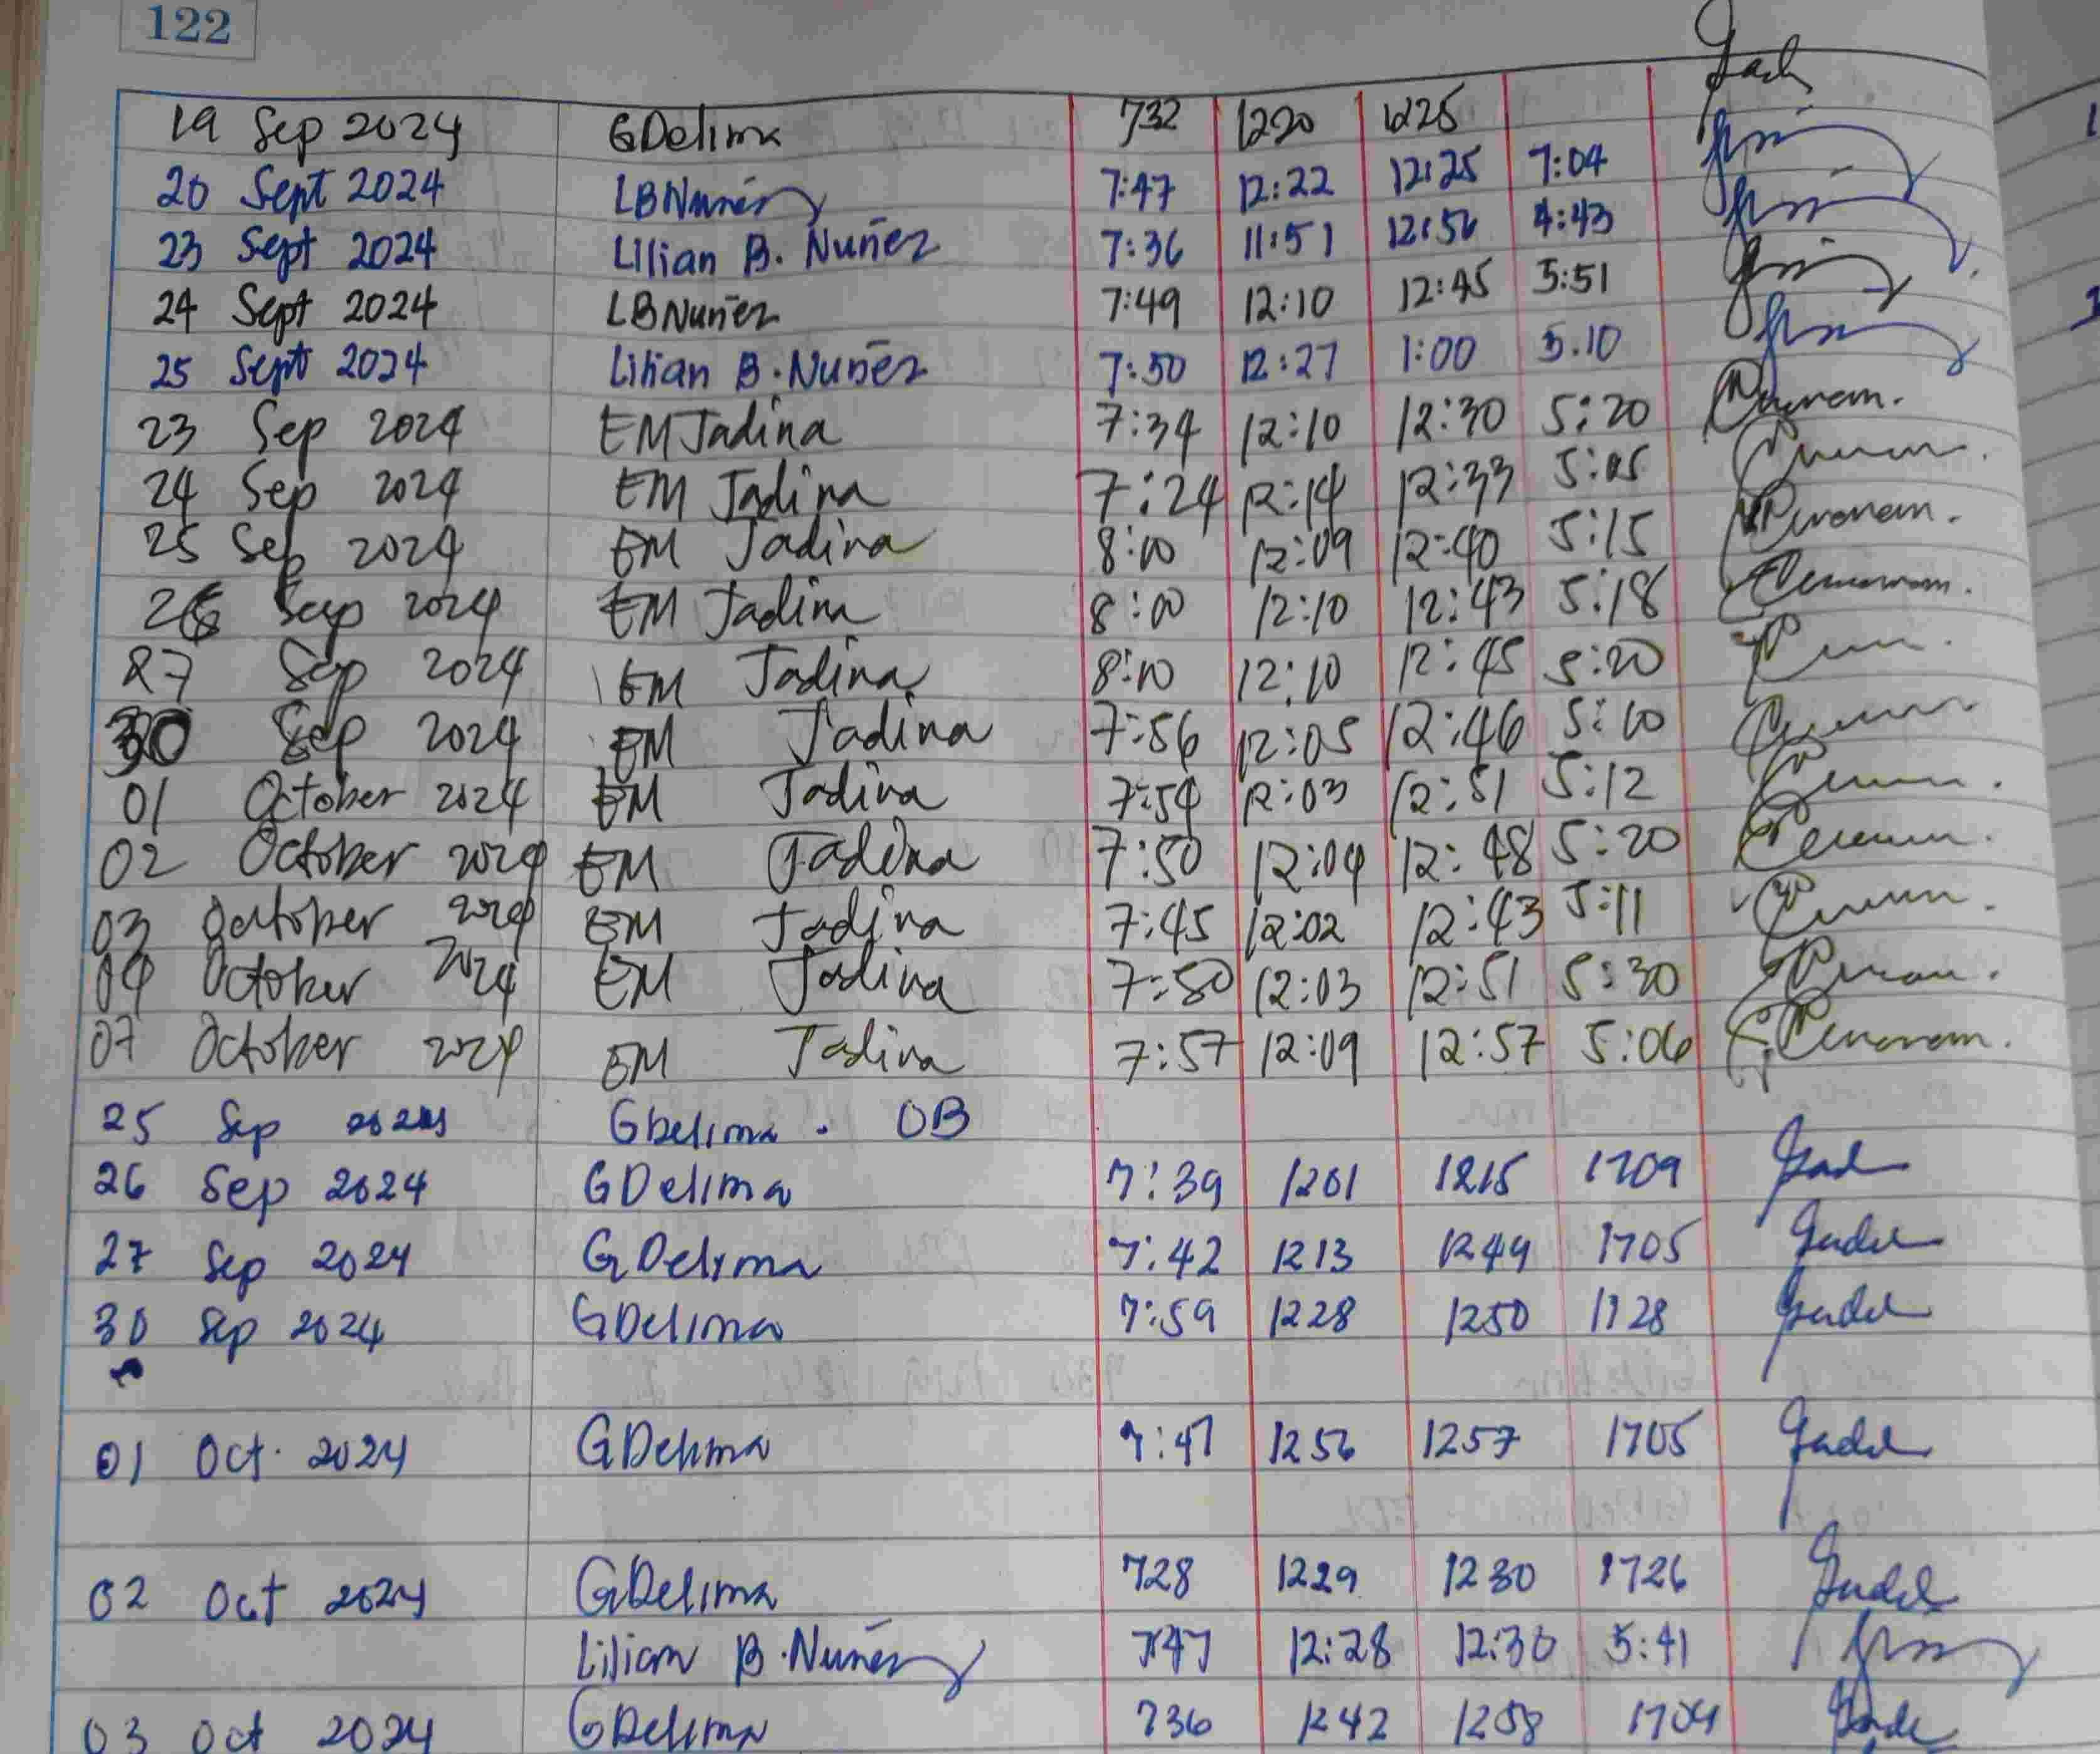 122
19 Sep 2024 GDelima 732 1220 1225
20 Sept 2024 LBNuñez 7:47 12:22 12:25 7:04
23 Sept 2024 Lilian B. Nuñez 7:36 11:51 12:56 4:43
24 Sept 2024 LBNuñez 7:49 12:10 12:45 5:51
25 Sept 2024 Lilian B. Nuñez 7:50 12:27 1:00 5.10
23 Sep 2024 EM Jadina 7:34 12:10 12:30 5:20
24 Sep 2024 EM Jadina 7:24 12:14 12:33 5:05
25 Sep 2024 EM Jadina 8:00 12:09 12:40 5:15
26 Sep 2024 EM Jadina 8:00 12:10 12:43 5:18
27 Sep 2024 EM Jadina 8:00 12:10 12:45 5:20
30 Sep 2024 EM Jadina 7:56 12:05 12:46 5:10
01 October 2024 EM Jadina 7:54 12:03 12:51 5:12
02 October 2024 EM Jadina 7:50 12:04 12:48 5:20
03 October 2024 EM Jadina 7:45 12:02 12:43 5:11
04 October 2024 EM Jadina 7:50 12:03 12:51 5:30
07 October 2024 EM Jadina 7:57 12:09 12:57 5:06
25 Sep 2024 GDelima . OB
26 Sep 2024 GDelima 7:39 1201 1215 1709
27 Sep 2024 GDelima 7:42 1213 1249 1705
30 Sep 2024 GDelima 7:59 1228 1250 1728
01 Oct. 2024 GDelima 7:47 1256 1257 1705
02 Oct 2024 GDelima 728 1229 1230 1726
Lilian B. Nuñez 747 12:28 12:30 5:41
03 Oct 2024 GDelima 736 1242 1258 1704